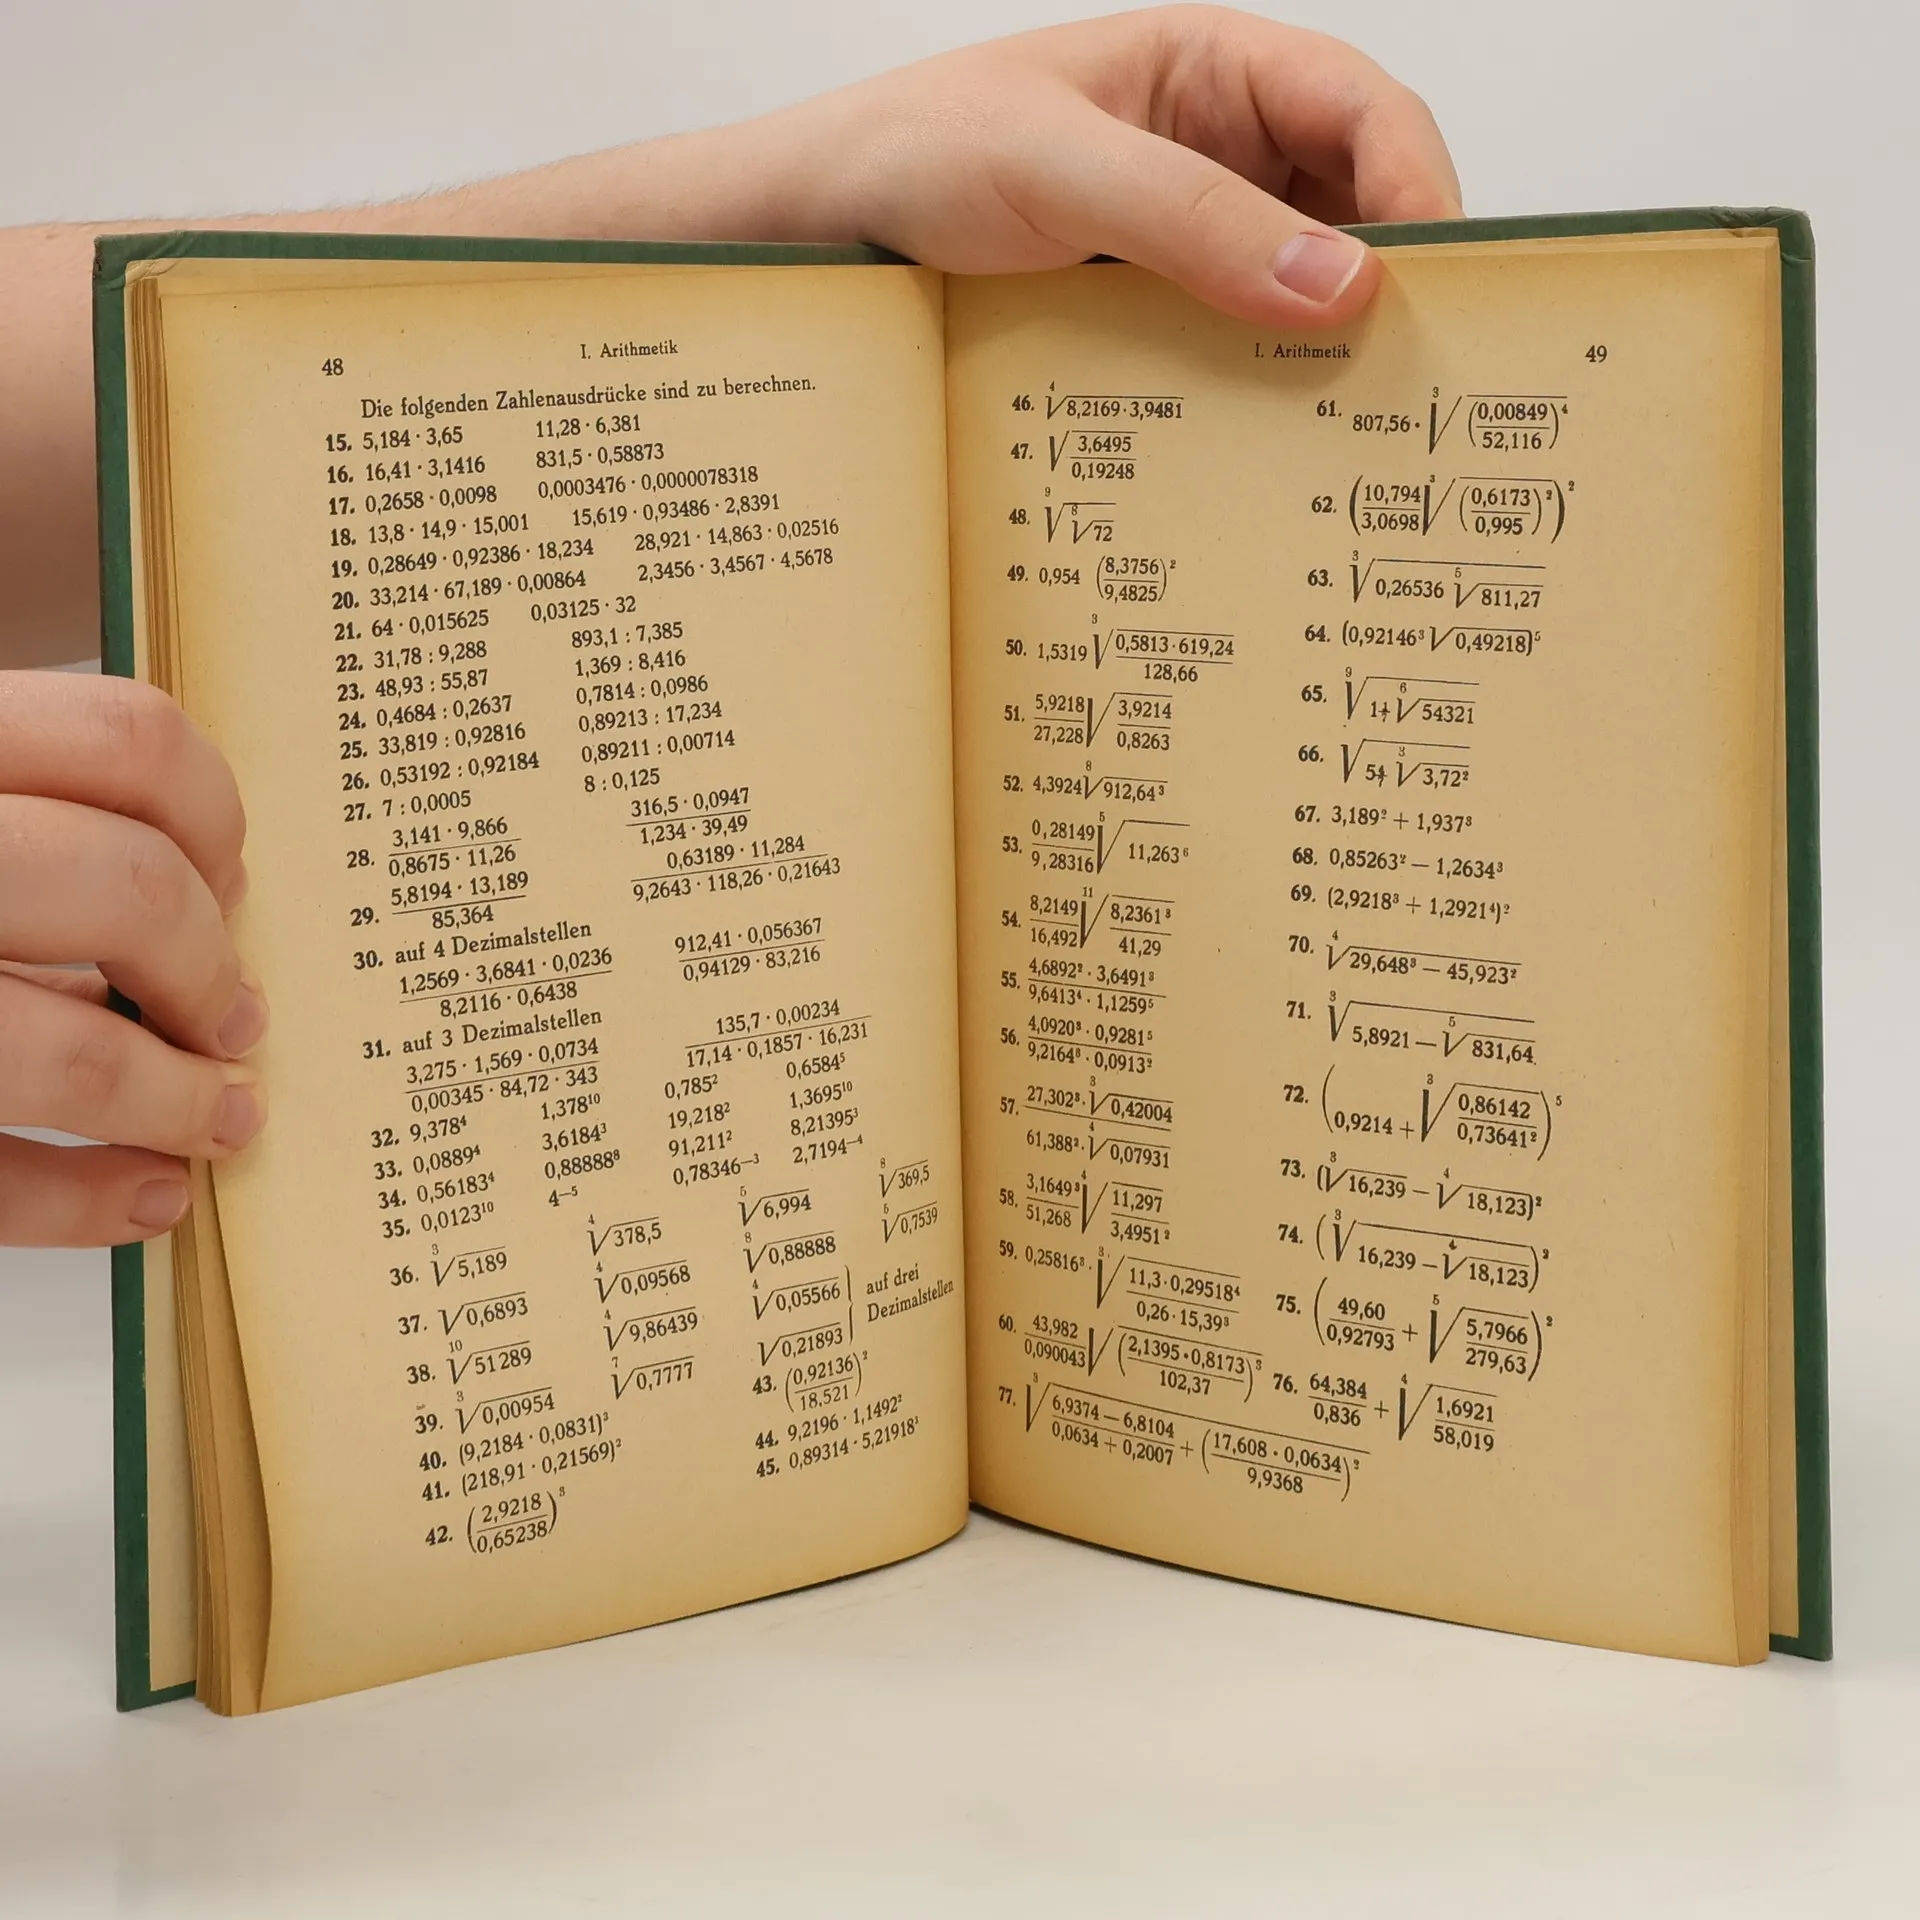 48
I. Arithmetik
Die folgenden Zahlenausdrücke sind zu berechnen.
15. 5,184 · 3,65 11,28 · 6,381
16. 16,41 · 3,1416 831,5 · 0,58873
17. 0,2658 · 0,0098 0,0003476 · 0,0000078318
18. 13,8 · 14,9 · 15,001 15,619 · 0,93486 · 2,8391
19. 0,28649 · 0,92386 · 18,234 28,921 · 14,863 · 0,02516
20. 33,214 · 67,189 · 0,00864 2,3456 · 3,4567 · 4,5678
21. 64 · 0,015625 0,03125 · 32
22. 31,78 : 9,288 893,1 : 7,385
23. 48,93 : 55,87 1,369 : 8,416
24. 0,4684 : 0,2637 0,7814 : 0,0986
25. 33,819 : 0,92816 0,89213 : 17,234
26. 0,53192 : 0,92184 0,89211 : 0,00714
27. 7 : 0,0005 8 : 0,125
28. 3,141 · 9,866 316,5 · 0,0947
0,8675 · 11,26 1,234 · 39,49
29. 5,8194 · 13,189 0,63189 · 11,284
85,364 9,2643 · 118,26 · 0,21643
30. auf 4 Dezimalstellen
1,2569 · 3,6841 · 0,0236 912,41 · 0,056367
8,2116 · 0,6438 0,94129 · 83,216
31. auf 3 Dezimalstellen
3,275 · 1,569 · 0,0734 135,7 · 0,00234
0,00345 · 84,72 · 343 17,14 · 0,1857 · 16,231
32. 9,378⁴ 1,378¹⁰ 0,785² 0,6584⁵
33. 0,0889⁴ 3,6184³ 19,218² 1,3695¹⁰
34. 0,56183⁴ 0,88888⁸ 91,211² 8,21395³
35. 0,0123¹⁰ 4⁻⁵ 0,78346⁻³ 2,7194⁻⁴
36. ³√5,189 ⁴√378,5 ⁵√6,994 ⁸√369,5
37. √0,6893 ⁴√0,09568 ⁸√0,88888 ⁵√0,7539
38. ¹⁰√51289 ⁴√9,86439 ⁴√0,05566 auf drei
39. ³√0,00954 ⁷√0,7777 √0,21893 Dezimalstellen
40. (9,2184 · 0,0831)³
41. (218,91 · 0,21569)²
42. (2,9218
0,65238)³
43. (0,92136
18,521)²
44. 9,2196 · 1,1492²
45. 0,89314 · 5,21918³
I. Arithmetik
49
46. ⁴√8,2169·3,9481
47. √3,6495
0,19248
48. ⁹√⁸√72
49. 0,954 (8,3756
9,4825)²
50. 1,5319 ³√0,5813·619,24
128,66
51. 5,9218 √3,9214
27,228 0,8263
52. 4,3924 ⁸√912,64³
53. 0,28149 ⁵√11,263⁶
9,28316
54. 8,2149 ¹¹√8,2361³
16,492 41,29
55. 4,6892² · 3,6491³
9,6413⁴ · 1,1259⁵
56. 4,0920³ · 0,9281⁵
9,2164³ · 0,0913²
57. 27,302³ · ³√0,42004
61,388² · ⁴√0,07931
58. 3,1649³ ⁴√11,297
51,268 3,4951²
59. 0,25816³ · ³√11,3·0,29518⁴
0,26·15,39³
60. 43,982 √(2,1395·0,8173)³
0,090043 102,37
61. 807,56 · ³√(0,00849)⁴
52,116
62. (10,794 ³√(0,6173)²)²
3,0698 0,995
63. ³√0,26536 ⁵√811,27
64. (0,92146³ √0,49218)⁵
65. ⁹√1 ⁶√54321
66. √5 ³√3,72²
67. 3,189² + 1,937³
68. 0,85263² — 1,2634³
69. (2,9218³ + 1,2921⁴)²
70. ⁴√29,648³ — 45,923²
71. ³√5,8921 — ⁵√831,64
72. (0,9214 + ³√0,86142
0,73641²)⁵
73. (³√16,239 — ⁴√18,123)²
74. (³√16,239 — ⁴√18,123)²
75. (49,60 + ⁵√5,7966
0,92793 279,63)²
76. 64,384 + ⁴√1,6921
0,836 58,019
77. ³√6,9374 — 6,8104 + (17,608 · 0,0634)²
0,0634 + 0,2007 9,9368